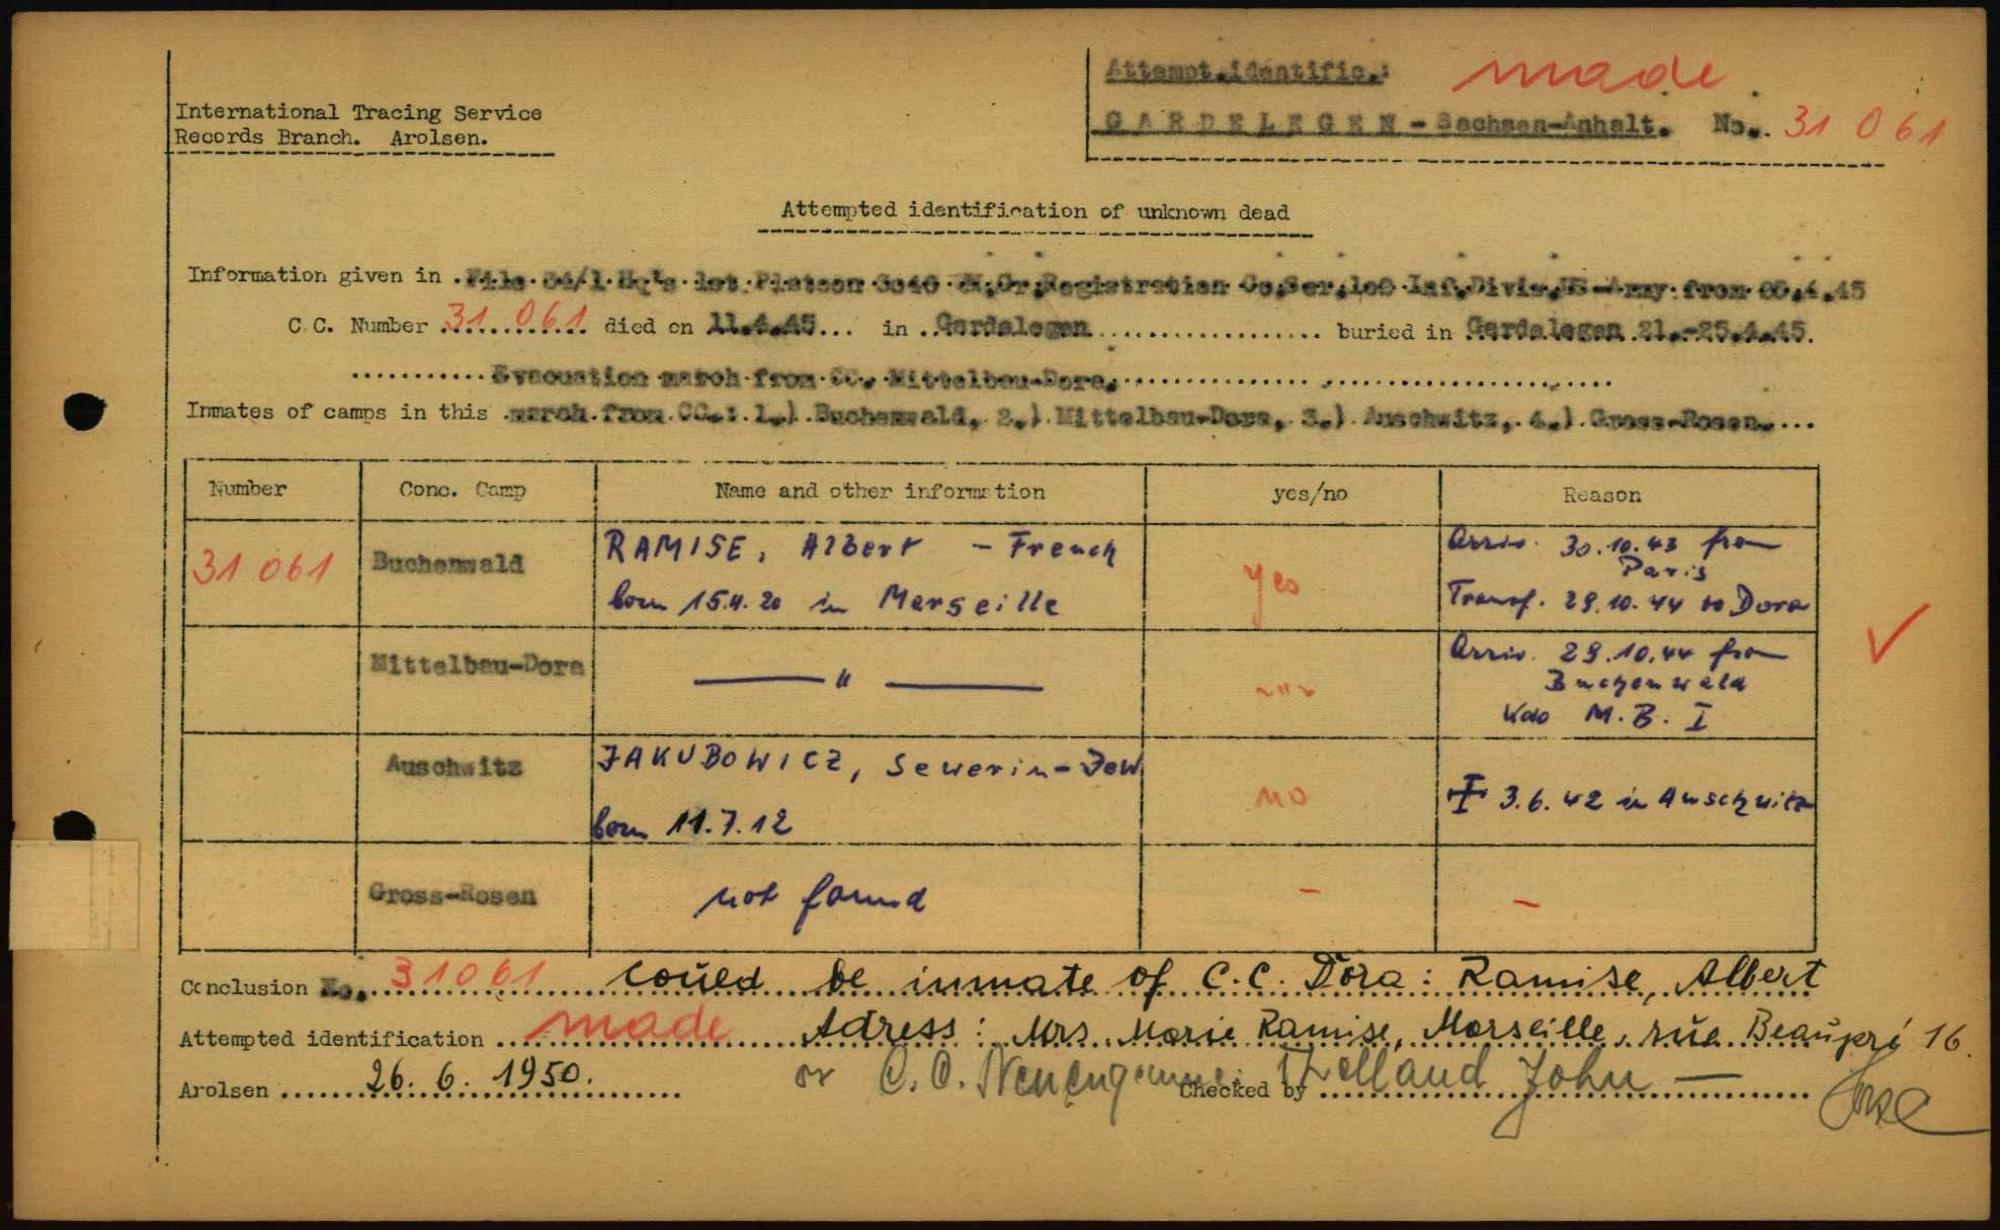 Attempt.identific.: made
International Tracing Service
Records Branch. Arolsen.
GARDELEGEN - Sachsen-Anhalt. No.. 31 061
Attempted identification of unknown dead
Information given in .File 34/1 Hq's 1st Platoon 3046 Gr.Registration Co,Ser,102 Inf.Divis,US-Army from .4.45
C.C. Number 31 061 died on 11.4.45... in ..Gardelegen.................... buried in Gardelegen 21.-25.4.45.
...........Evacuation march from CC. Mittelbau-Dora,...................................
Inmates of camps in this .march from CC.: 1.) Buchenwald, 2.) Mittelbau-Dora, 3.) Auschwitz, 4.) Gross-Rosen....
Number Conc. Camp Name and other information yes/no Reason
31 061 Buchenwald RAMISE, Albert - French
born 15.4.20 in Marseille
yes
Arriv. 30.10.43 from
Paris
Transf. 29.10.44 to Dora
Mittelbau-Dora — " —
Arriv. 29.10.44 from
Buchenwald
Kdo M.B. I
Auschwitz JAKUBOWICZ, Sewerin - Jew
born 11.7.12
no
3.6.42 in Auschwitz
Gross-Rosen not found - -
Conclusion No. 31061 could be inmate of C.C. Dora: Ramise, Albert
Attempted identification made Adress: Mrs. Marie Ramise, Marseille, rue Beaupré 16.
Arolsen 26. 6. 1950. Checked by
or C.C. Neuengamme: John —